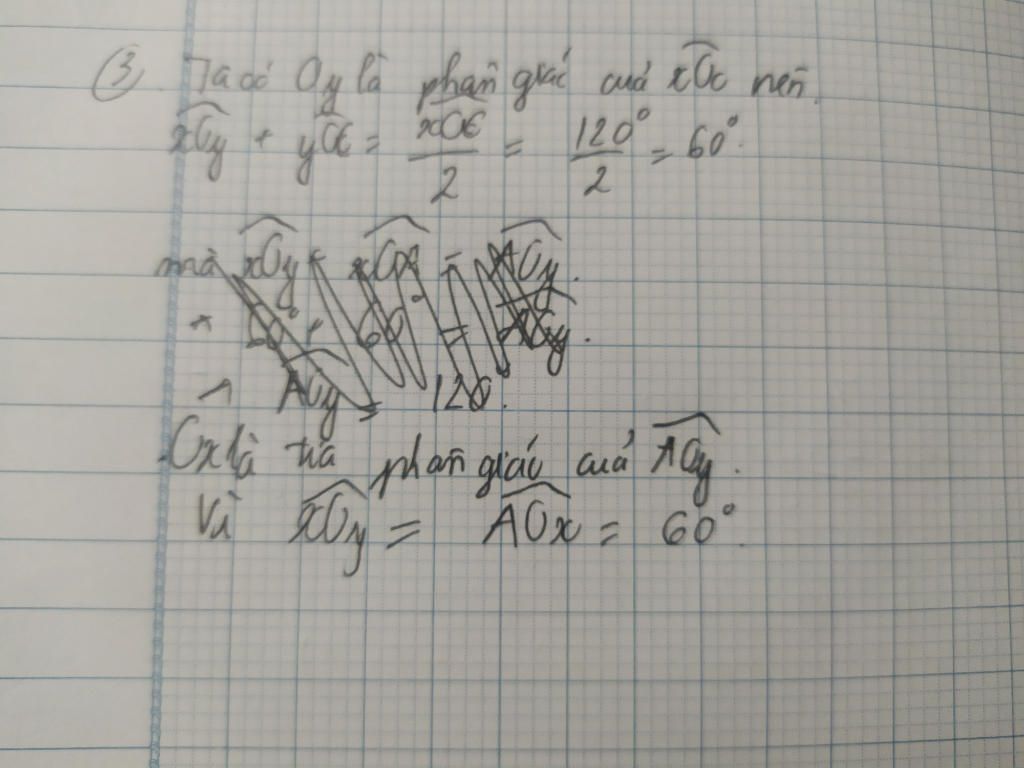 ③. Ta có Oy là phân giác của xOC nên.
xOy + yOC = xOC/2 = 120°/2 = 60°.
mà xOy + xOA = AOy.
60° + 60° = AOy.
AOy = 120.
Ox là tia phân giác của AOy.
Vì xOy = AOx = 60°.